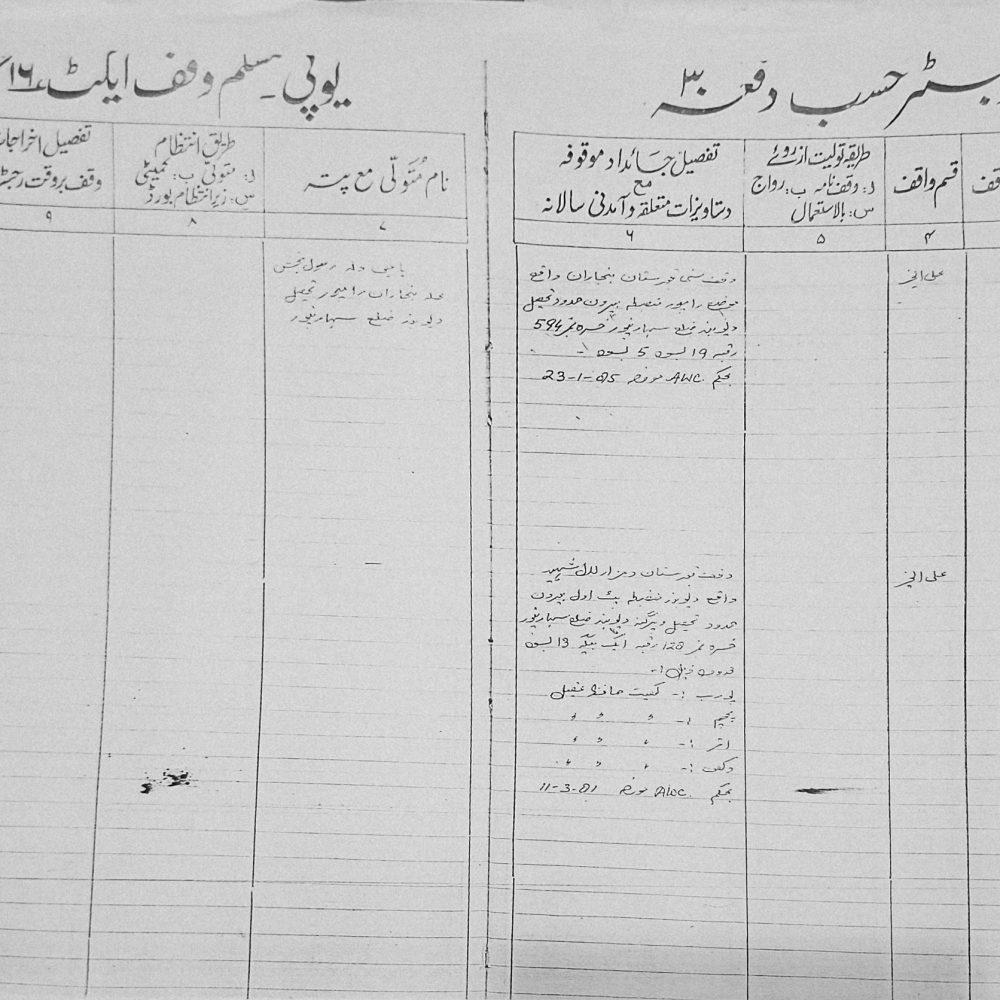 رجسٹر حسب دفعہ ۳۰
یوپی۔ مسلم وقف ایکٹ ۱۶
قسم واقف
۴
طریقہ تولیت از روئے
ا: وقف نامہ ب: رواج
س: بالاستعمال
۵
تفصیل جائداد موقوفہ
مع
دستاویزات متعلقہ و آمدنی سالانہ
۶
نام مُتَولّی مع پتہ
۷
طریق انتظام
ا: متولی ب: کمیٹی
س: زیر انتظام بورڈ
۸
تفصیل اخراجات
وقف بروقت رجسٹر
۹
علی الخیر
وقف سنی قبرستان بنجاران واقع
موضع رامپور متصلہ بیرون حدود تحصیل
دیوبند ضلع سہارنپور خسرہ نمبر 594
رقبہ 19
بحکم AWC. مورخہ 23-1-85
ولد رسول بخش
محلہ بنجاران رامپور تحصیل
دیوبند ضلع سہارنپور
علی الخیر
وقف قبرستان و مزار لال شہید
واقع دیوبند متصلہ اول بیرون
حدود تحصیل و پرگنہ دیوبند ضلع سہارنپور
خسرہ نمبر 128 رقبہ ایک بیگھہ 13
حدود ذیل :-
پورب :- کھیت حافظ عقیل
پچھم :- 〃 〃 〃
اتر :- 〃 〃 〃
دکھن :- 〃 〃 〃
بحکم AWC. مورخہ 11-3-81